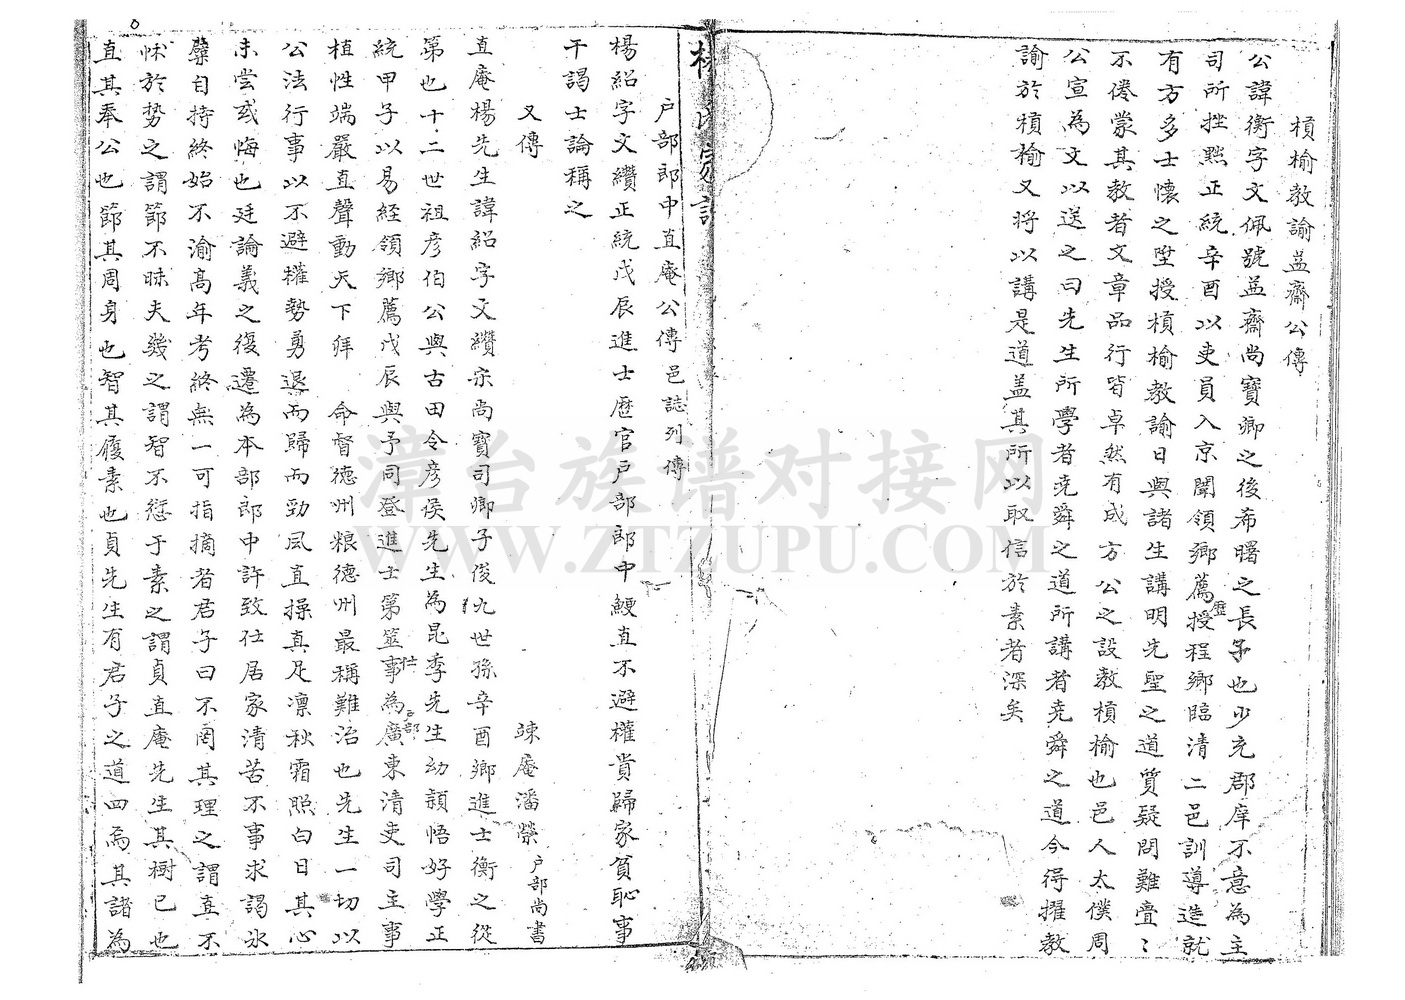 槓榆教諭益齋公傳
公諱衡字文佩號益齋尚寶卿之後希曙之長子也少充郡庠不意為主
司所挫黜正統辛酉以吏員入京闈領鄉薦授程鄉臨清二邑訓導造就
有方多士懷之陞授槓榆教諭日與諸生講明先聖之道質疑問難亹〻
不倦蒙其教者文章品行皆卓然有成方公之設教槓榆也邑人太僕周
公宣為文以送之曰先生所學者堯舜之道所講者堯舜之道今得擢教
諭於槓榆又將以講是道盖其所以取信於素者深矣
楊氏家譜
戶部郎中直庵公傳 邑誌列傳
楊紹字文纘正統戊辰進士歷官戶部郎中鯁直不避權貴歸家貧恥事
干謁士論稱之
又傳 竦庵潘榮 戶部尚書
直庵楊先生諱紹字文纘宗尚寶司卿子俊九世孫辛酉鄉進士衡之從
第也十二世祖彦伯公與古田令彦侯先生為昆季先生幼穎悟好學正
統甲子以易経領鄉薦戊辰與予同登進士第筮仕事為戶部廣東清吏司主事
植性端嚴直聲動天下拜 命督德州粮德州最稱難治也先生一切以
公法行事以不避權勢勇退而歸而勁風直操真足凛秋霜照白日其心
未尝或悔也廷論義之復遷為本部郎中許致仕居家清苦不事求謁氷
檗自持終始不渝高年考終無一可指摘者君子曰不罔其理之謂直不
怵於势之謂節不昧夫幾之謂智不愆于素之謂貞直庵先生其樹已也
直其奉公也節其周身也智其履素也貞先生有君子之道四焉其諸為
漳台族谱对接网
WWW.ZTZUPU.COM